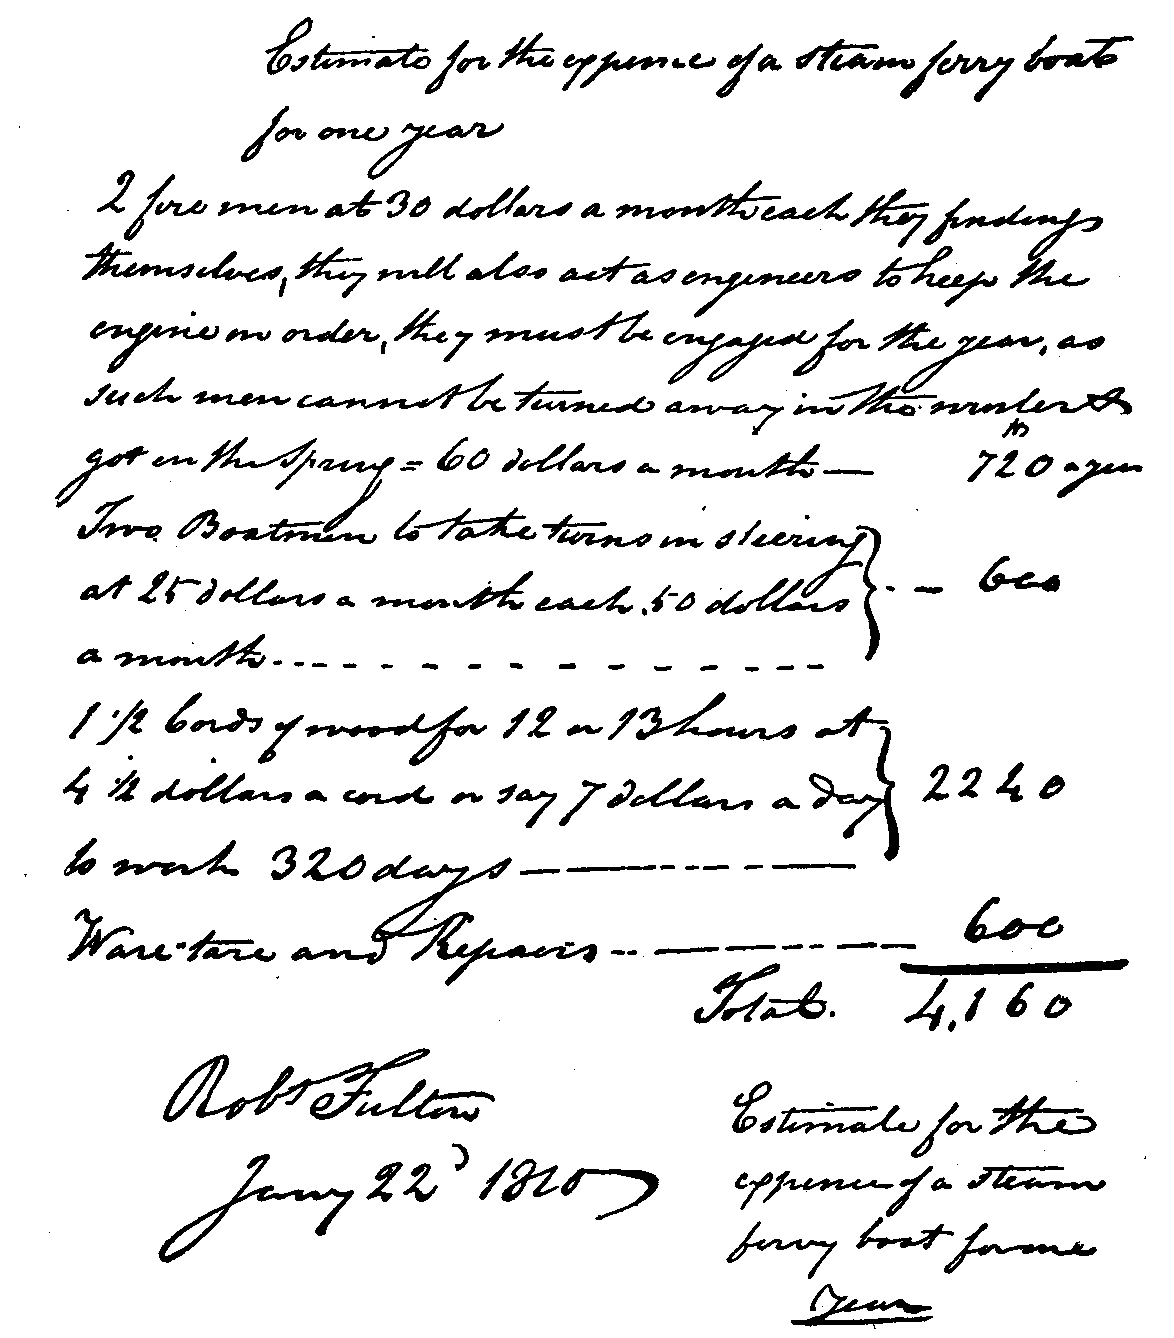 Estimate for the expence of a steam ferry boat
for one year
2 fire men at 30 dollars a month each they finding
themselves, they will also act as engineers to keep the
engine in order, they must be engaged for the year, as
such men cannot be turned away in the winter &
got in the Spring = 60 dollars a month — 720 a year
Two Boatmen to take turns in steering
at 25 dollars a month each. 50 dollars - — 600
a month - - - - - - - - - - - -
1 1/2 Cords of wood for 12 or 13 hours at
4 1/2 dollars a cord or say 7 dollars a day 2240
to work 320 days — - - - —
Ware-tare and Repairs - - — - - - — 600
Total. 4,160
Robt Fulton
Jany 22d 1810
Estimate for the
expence of a steam
ferry boat for one
year